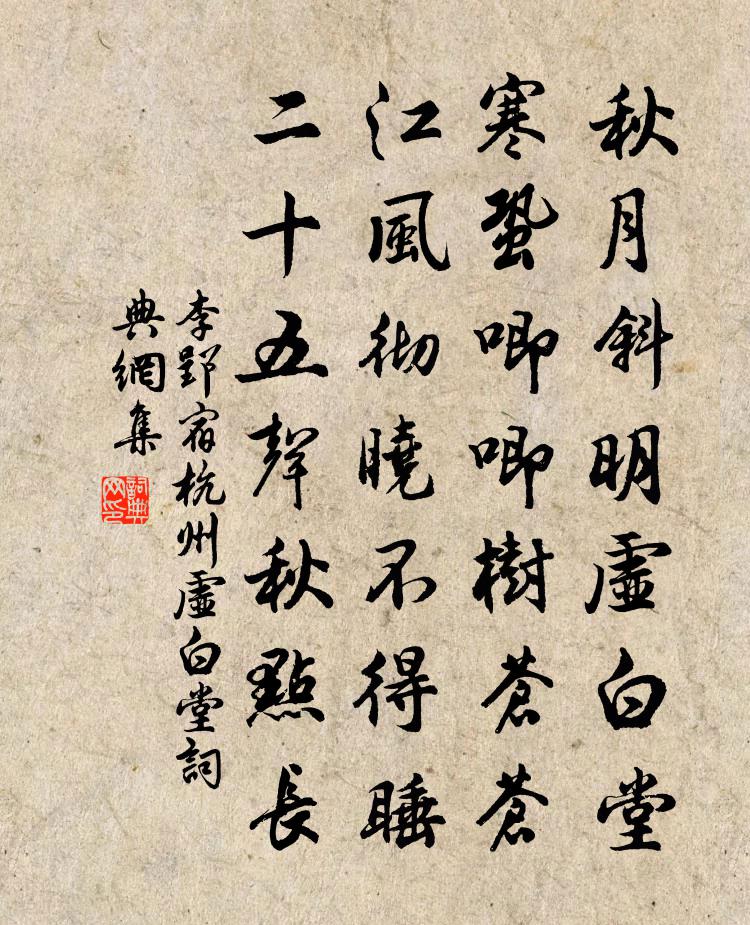 秋月斜明虛白堂
寒蛩唧唧樹蒼蒼
江風徹曉不得睡
二十五聲秋點長
李郢宿杭州虛白堂詞
典網集
詞典
网印